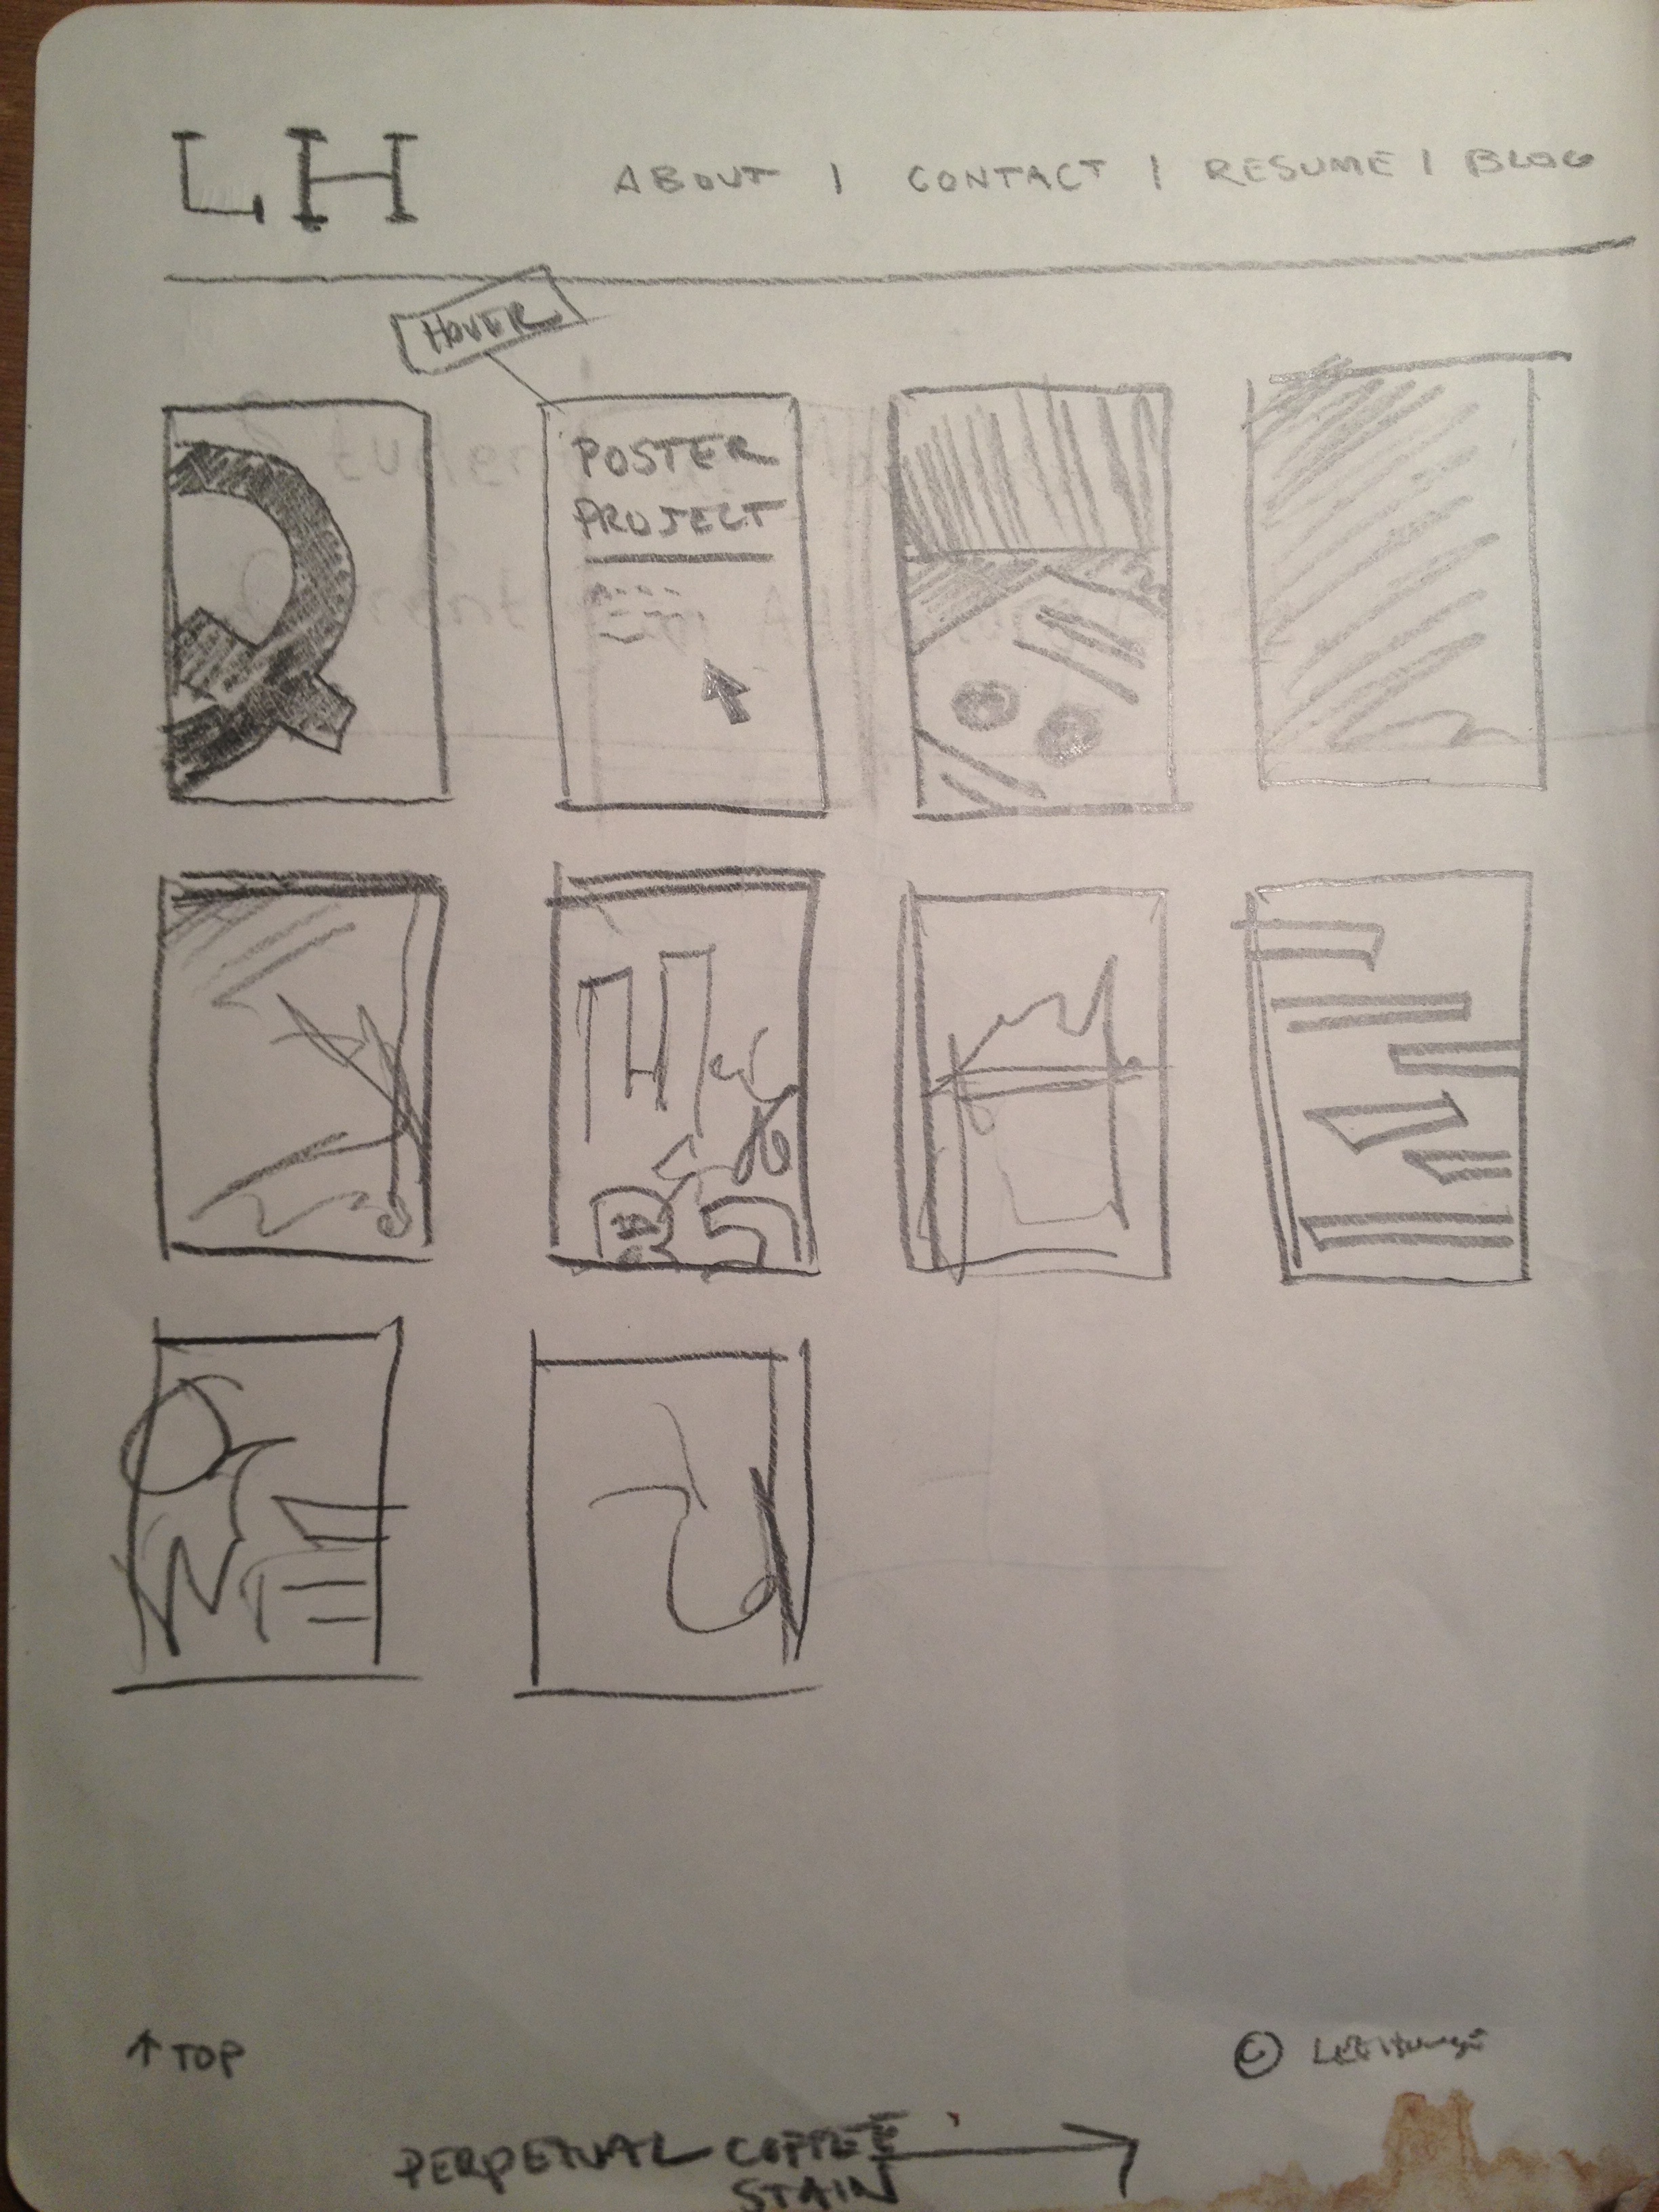 LH
ABOUT | CONTACT | RESUME | BLOG
HOVER
POSTER
PROJECT
↑ TOP
©
PERPETUAL COFFEE
STAIN